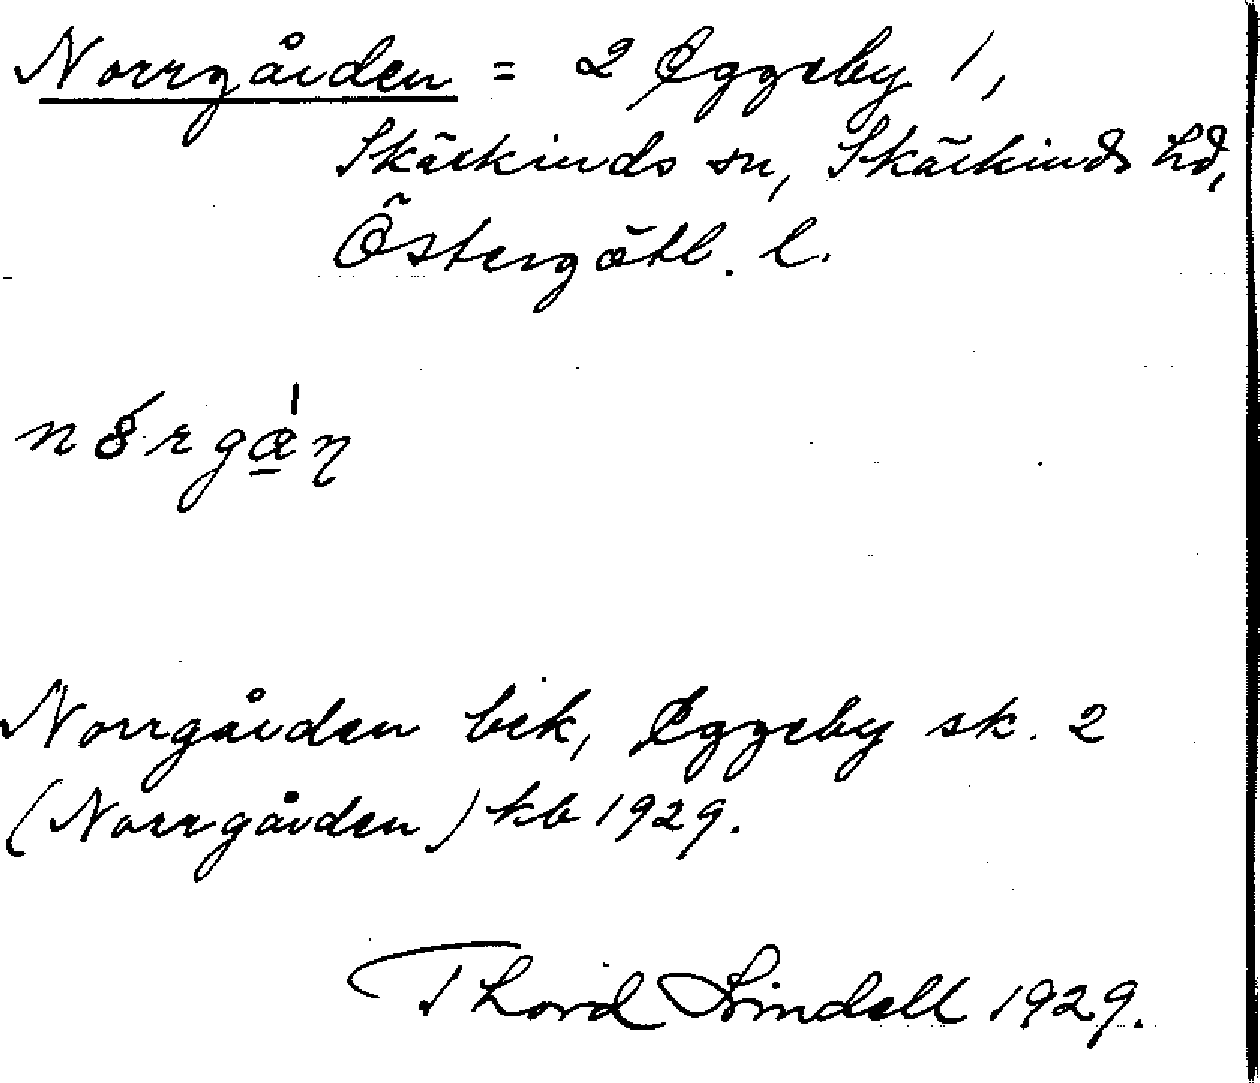 Norrgården = 2 Eggeby 1,
Skärkinds sn, Skärkinds hd,
Östergötl. l.
Norrgården bek, Eggeby sk. 2
(Norrgården) kb 1929.
Thord Lindell 1929.